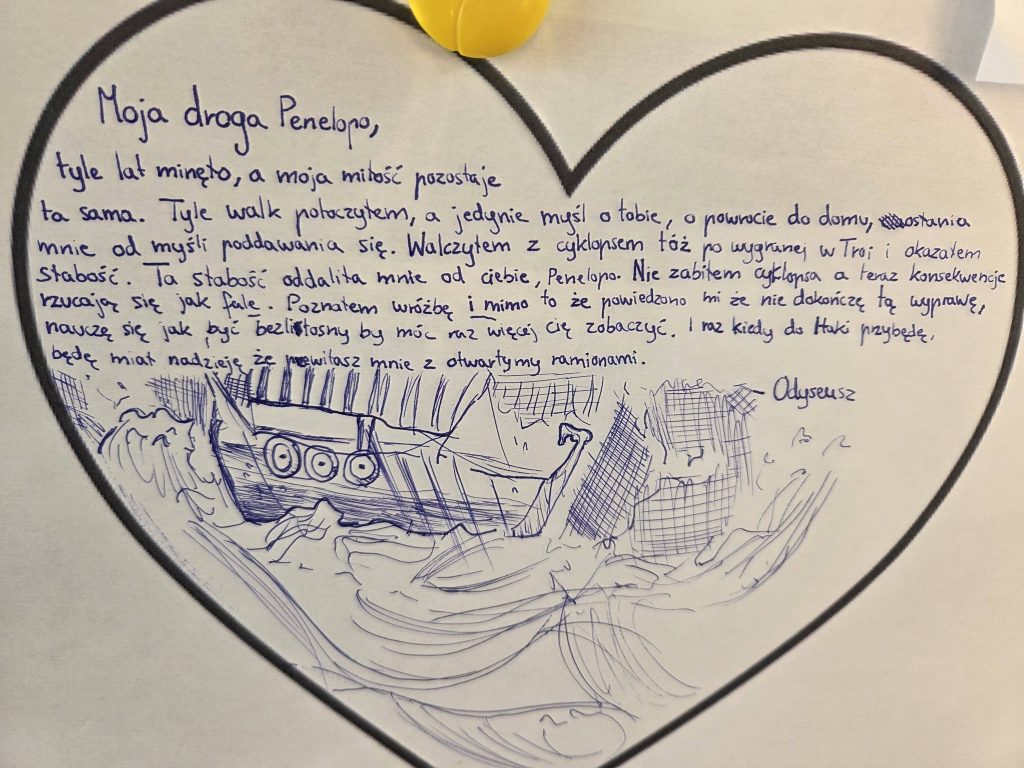 Moja droga Penelopo,
tyle lat minęło, a moja miłość pozostaje
ta sama. Tyle walk potoczyłem, a jedynie myśl o tobie, o powrocie do domu, ostania
mnie od myśli poddawania się. Walczyłem z cyklopsem tóż po wygranej w Troi i okazałem
słabość. Ta słabość oddaliła mnie od ciebie, Penelopo. Nie zabiłem cyklopsa a teraz konsekwencje
rzucają się jak fale. Poznałem wróżbę i mimo to że powiedziano mi że nie dokończę tą wyprawę,
nauczę się jak być bezlitosny by móc raz więcej cię zobaczyć. I raz kiedy do Itaki przybędę,
będę miał nadzieję że powitasz mnie z otwartymy ramionami.
- Odyseusz